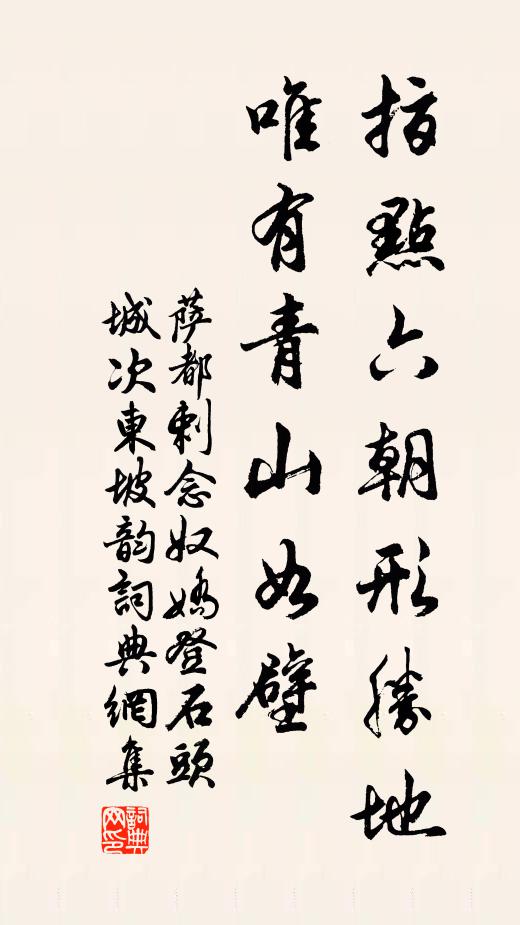 指點六朝形勝地
唯有青山如壁
薩都剌念奴嬌登石頭
城次東坡韵詞典網集
詞典
网印